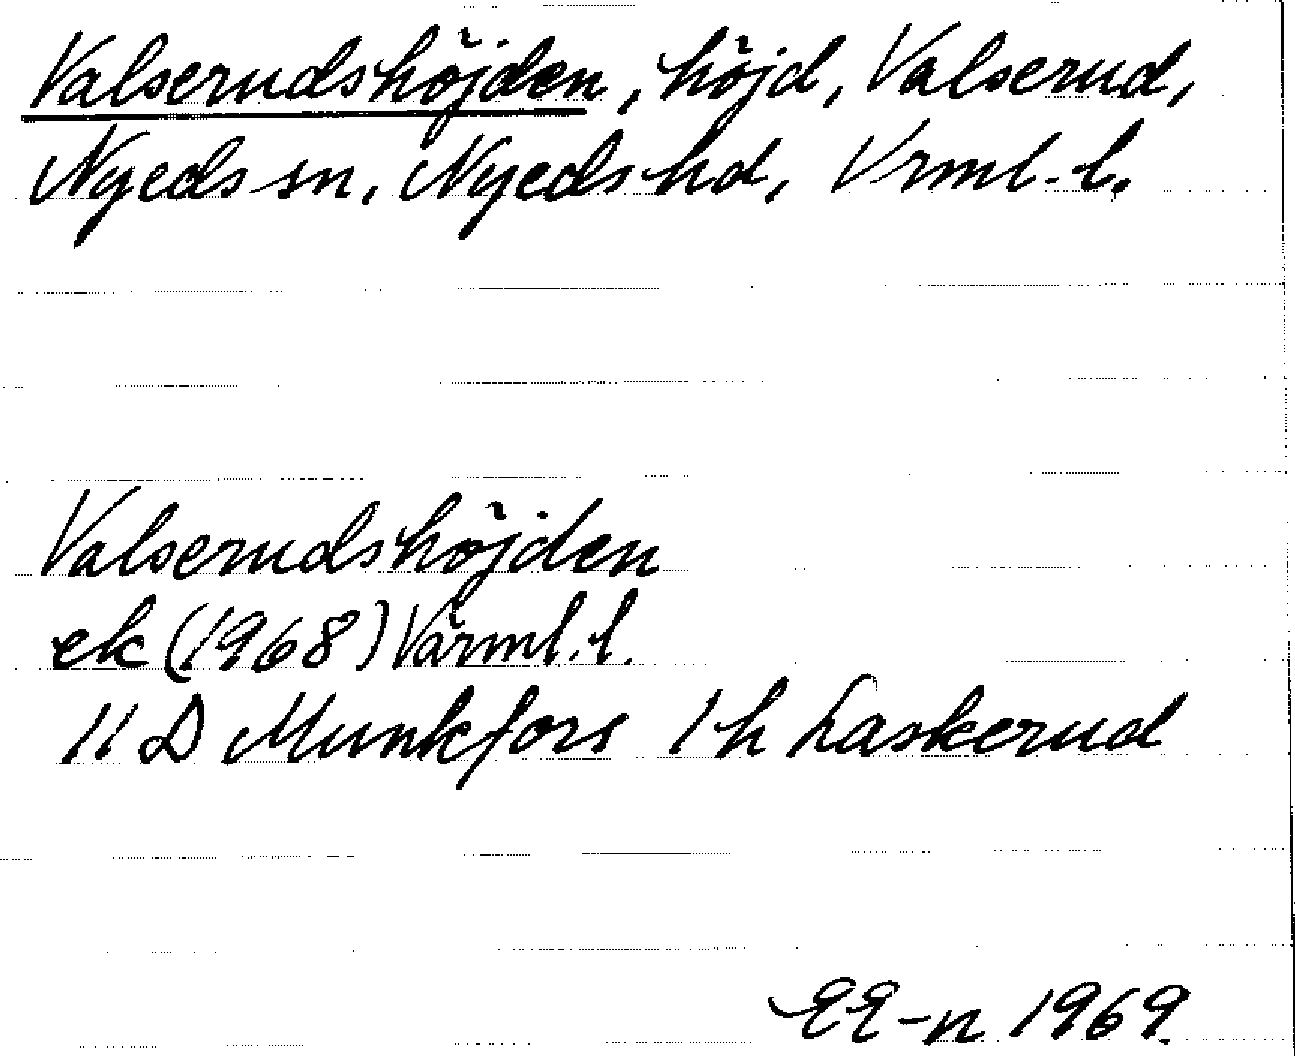 Valserudshöjden, höjd, Valserud,
Nyeds sn, Nyeds hd, Vrml. l.
Valserudshöjden
ek (1968) Värml. l.
11 D Munkfors 1 h Laskerud
EE-n 1969.